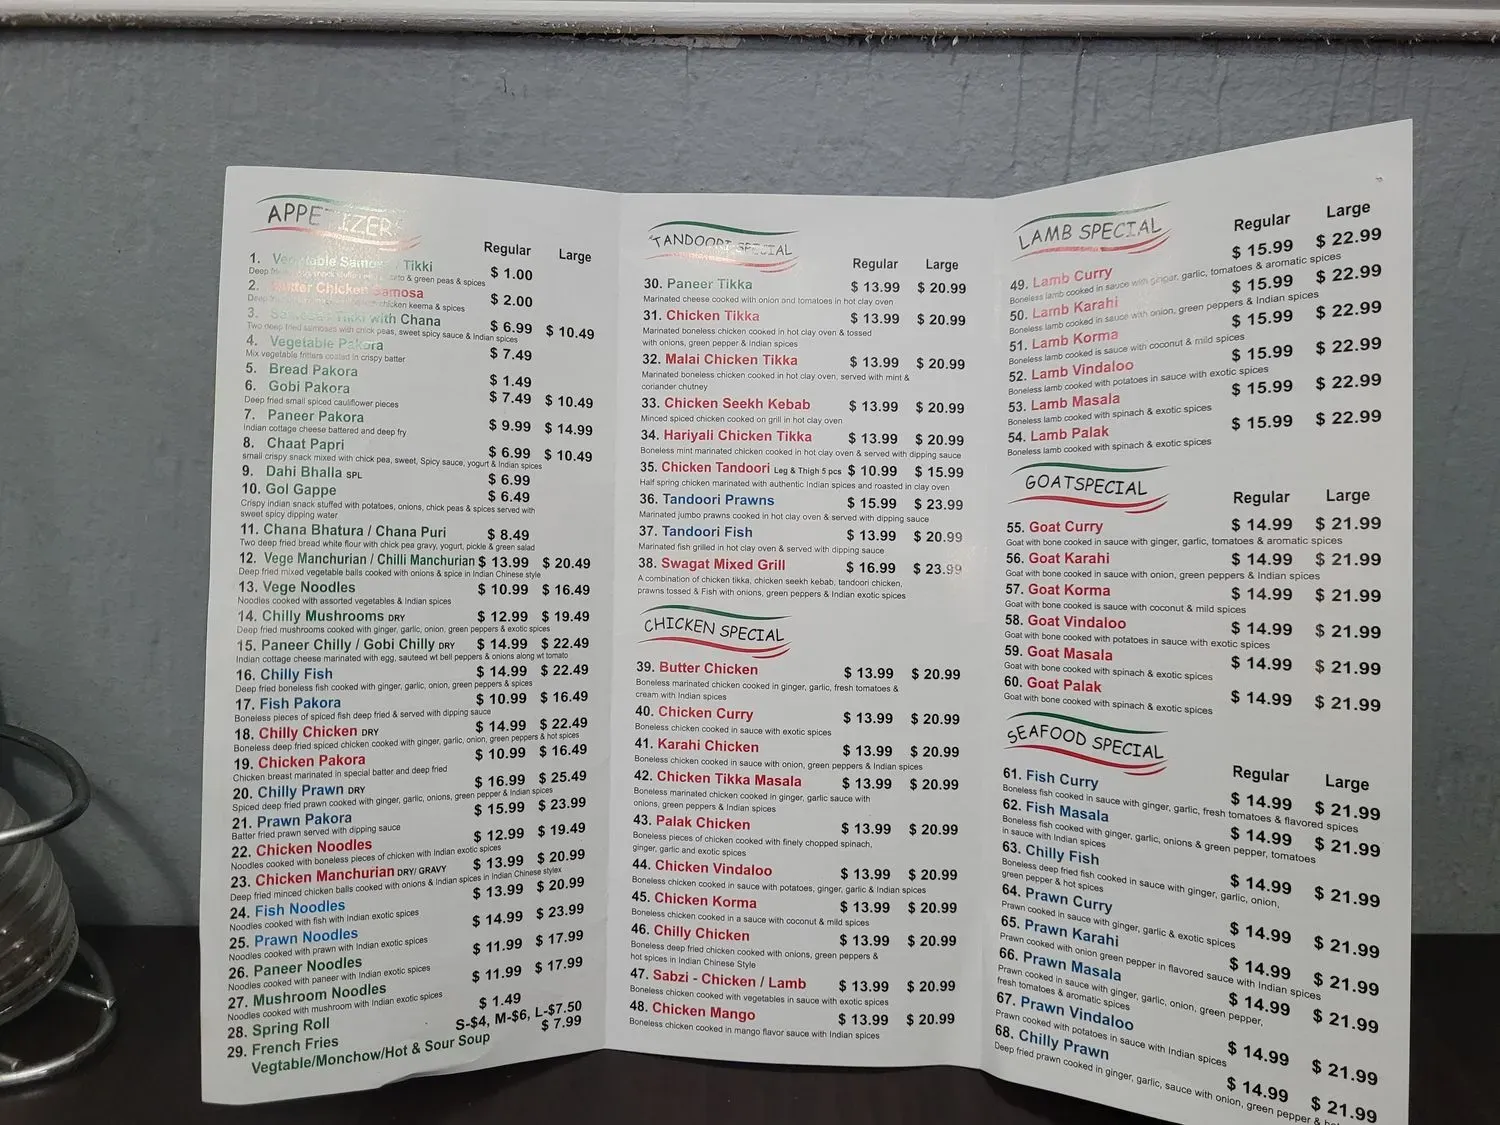 APPETIZERS
Regular Large
1. Vegetable Samosa / Tikki $ 1.00
Deep fried & green peas & spices
2. Butter Chicken Samosa $ 2.00
Deep chicken keema & spices
3. Samosas Tikki with Chana $ 6.99 $ 10.49
Two deep fried samosas with chick peas, sweet spicy sauce & Indian spices
4. Vegetable Pakora $ 7.49
Mix vegetable fritters coated in crispy batter
5. Bread Pakora $ 1.49
6. Gobi Pakora $ 7.49 $ 10.49
Deep fried small spiced cauliflower pieces
7. Paneer Pakora $ 9.99 $ 14.99
Indian cottage cheese battered and deep fry
8. Chaat Papri $ 6.99 $ 10.49
small crispy snack mixed with chick pea, sweet, Spicy sauce, yogurt & Indian spices
9. Dahi Bhalla SPL $ 6.99
10. Gol Gappe $ 6.49
Crispy indian snack stuffed with potatoes, onions, chick peas & spices served with
sweet spicy dipping water
11. Chana Bhatura / Chana Puri $ 8.49
Two deep fried bread white flour with chick pea gravy, yogurt, pickle & green salad
12. Vege Manchurian / Chilli Manchurian $ 13.99 $ 20.49
Deep fried mixed vegetable balls cooked with onions & spice in Indian Chinese style
13. Vege Noodles $ 10.99 $ 16.49
Noodles cooked with assorted vegetables & Indian spices
14. Chilly Mushrooms DRY $ 12.99 $ 19.49
Deep fried mushrooms cooked with ginger, garlic, onion, green peppers & exotic spices
15. Paneer Chilly / Gobi Chilly DRY $ 14.99 $ 22.49
Indian cottage cheese marinated with egg, sauteed wt bell peppers & onions along wt tomato
16. Chilly Fish $ 14.99 $ 22.49
Deep fried boneless fish cooked with ginger, garlic, onion, green peppers & spices
17. Fish Pakora $ 10.99 $ 16.49
Boneless pieces of spiced fish deep fried & served with dipping sauce
18. Chilly Chicken DRY $ 14.99 $ 22.49
Boneless deep fried spiced chicken cooked with ginger, garlic, onion, green peppers & hot spices
19. Chicken Pakora $ 10.99 $ 16.49
Chicken breast marinated in special batter and deep fried
20. Chilly Prawn DRY $ 16.99 $ 25.49
Spiced deep fried prawn cooked with ginger, garlic, onions, green pepper & Indian spices
21. Prawn Pakora $ 15.99 $ 23.99
Batter fried prawn served with dipping sauce
22. Chicken Noodles $ 12.99 $ 19.49
Noodles cooked with boneless pieces of chicken with Indian exotic spices
23. Chicken Manchurian DRY/ GRAVY $ 13.99 $ 20.99
Deep fried minced chicken balls cooked with onions & Indian spices in Indian Chinese stylex
24. Fish Noodles $ 13.99 $ 20.99
Noodles cooked with fish with Indian exotic spices
25. Prawn Noodles $ 14.99 $ 23.99
Noodles cooked with prawn with Indian exotic spices
26. Paneer Noodles $ 11.99 $ 17.99
Noodles cooked with paneer with Indian exotic spices
27. Mushroom Noodles $ 11.99 $ 17.99
Noodles cooked with mushroom with Indian exotic spices
28. Spring Roll $ 1.49
29. French Fries S-$4, M-$6, L-$7.50
Vegtable/Monchow/Hot & Sour Soup $ 7.99
TANDOORI SPECIAL
Regular Large
30. Paneer Tikka $ 13.99 $ 20.99
Marinated cheese cooked with onion and tomatoes in hot clay oven
31. Chicken Tikka $ 13.99 $ 20.99
Marinated boneless chicken cooked in hot clay oven & tossed
with onions, green pepper & Indian spices
32. Malai Chicken Tikka $ 13.99 $ 20.99
Marinated boneless chicken cooked in hot clay oven, served with mint &
coriander chutney
33. Chicken Seekh Kebab $ 13.99 $ 20.99
Minced spiced chicken cooked on grill in hot clay oven
34. Hariyali Chicken Tikka $ 13.99 $ 20.99
Boneless mint marinated chicken cooked in hot clay oven & served with dipping sauce
35. Chicken Tandoori Leg & Thigh 5 pcs $ 10.99 $ 15.99
Half spring chicken marinated with authentic Indian spices and roasted in clay oven
36. Tandoori Prawns $ 15.99 $ 23.99
Marinated jumbo prawns cooked in hot clay oven & served with dipping sauce
37. Tandoori Fish $ 13.99 $ 20.99
Marinated fish grilled in hot clay oven & served with dipping sauce
38. Swagat Mixed Grill $ 16.99 $ 23.99
A combination of chicken tikka, chicken seekh kebab, tandoori chicken,
prawns tossed & Fish with onions, green peppers & Indian exotic spices
CHICKEN SPECIAL
39. Butter Chicken $ 13.99 $ 20.99
Boneless marinated chicken cooked in ginger, garlic, fresh tomatoes &
cream with Indian spices
40. Chicken Curry $ 13.99 $ 20.99
Boneless chicken cooked in sauce with exotic spices
41. Karahi Chicken $ 13.99 $ 20.99
Boneless chicken cooked in sauce with onion, green peppers & Indian spices
42. Chicken Tikka Masala $ 13.99 $ 20.99
Boneless marinated chicken cooked in ginger, garlic sauce with
onions, green peppers & Indian spices
43. Palak Chicken $ 13.99 $ 20.99
Boneless pieces of chicken cooked with finely chopped spinach,
ginger, garlic and exotic spices
44. Chicken Vindaloo $ 13.99 $ 20.99
Boneless chicken cooked in sauce with potatoes, ginger, garlic & Indian spices
45. Chicken Korma $ 13.99 $ 20.99
Boneless chicken cooked in a sauce with coconut & mild spices
46. Chilly Chicken $ 13.99 $ 20.99
Boneless deep fried chicken cooked with onions, green peppers &
hot spices in Indian Chinese Style
47. Sabzi - Chicken / Lamb $ 13.99 $ 20.99
Boneless chicken cooked with vegetables in sauce with exotic spices
48. Chicken Mango $ 13.99 $ 20.99
Boneless chicken cooked in mango flavor sauce with Indian spices
LAMB SPECIAL
Regular Large
49. Lamb Curry $ 15.99 $ 22.99
Boneless lamb cooked in sauce with ginger, garlic, tomatoes & aromatic spices
50. Lamb Karahi $ 15.99 $ 22.99
Boneless lamb cooked in sauce with onion, green peppers & Indian spices
51. Lamb Korma $ 15.99 $ 22.99
Boneless lamb cooked is sauce with coconut & mild spices
52. Lamb Vindaloo $ 15.99 $ 22.99
Boneless lamb cooked with potatoes in sauce with exotic spices
53. Lamb Masala $ 15.99 $ 22.99
Boneless lamb cooked with spinach & exotic spices
54. Lamb Palak $ 15.99 $ 22.99
Boneless lamb cooked with spinach & exotic spices
GOATSPECIAL
Regular Large
55. Goat Curry $ 14.99 $ 21.99
Goat with bone cooked in sauce with ginger, garlic, tomatoes & aromatic spices
56. Goat Karahi $ 14.99 $ 21.99
Goat with bone cooked in sauce with onion, green peppers & Indian spices
57. Goat Korma $ 14.99 $ 21.99
Goat with bone cooked is sauce with coconut & mild spices
58. Goat Vindaloo $ 14.99 $ 21.99
Goat with bone cooked with potatoes in sauce with exotic spices
59. Goat Masala $ 14.99 $ 21.99
Goat with bone cooked with spinach & exotic spices
60. Goat Palak $ 14.99 $ 21.99
Goat with bone cooked with spinach & exotic spices
SEAFOOD SPECIAL
Regular Large
61. Fish Curry $ 14.99 $ 21.99
Boneless fish cooked in sauce with ginger, garlic, fresh tomatoes & flavored spices
62. Fish Masala $ 14.99 $ 21.99
Boneless fish cooked with ginger, garlic, onions & green pepper, tomatoes
in sauce with Indian spices
63. Chilly Fish $ 14.99 $ 21.99
Boneless deep fried fish cooked in sauce with ginger, garlic, onion,
green pepper & hot spices
64. Prawn Curry $ 14.99 $ 21.99
Prawn cooked in sauce with ginger, garlic & exotic spices
65. Prawn Karahi $ 14.99 $ 21.99
Prawn cooked with onion green pepper in flavored sauce with Indian spices
66. Prawn Masala $ 14.99 $ 21.99
Prawn cooked in sauce with ginger, garlic, onion, green pepper,
fresh tomatoes & aromatic spices
67. Prawn Vindaloo $ 14.99 $ 21.99
Prawn cooked with potatoes in sauce with Indian spices
68. Chilly Prawn $ 14.99 $ 21.99
Deep fried prawn cooked in ginger, garlic, sauce with onion, green pepper &